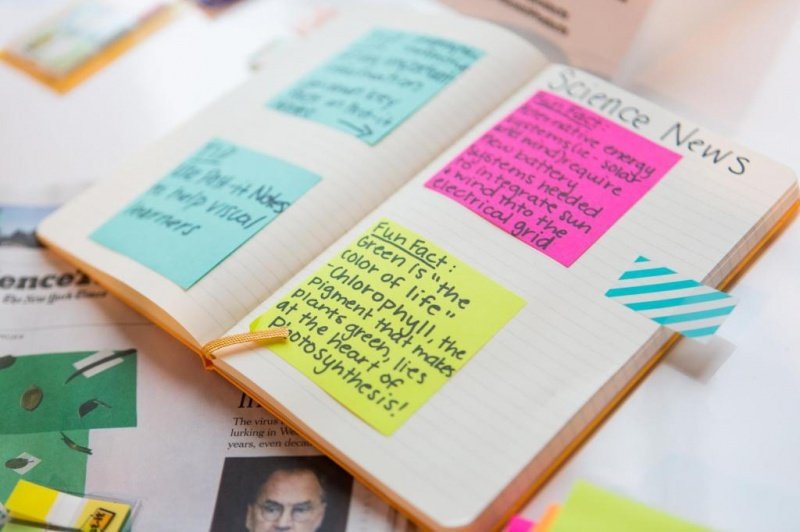 Use Post-it Notes
to help visual
learners
Science News
Fun Fact:
Alternative energy
systems (ie - solar
and wind) require
new battery
systems needed
to integrate sun
+ wind into the
electrical grid
Fun Fact:
Green is "the
color of life"
Chlorophyll, the
pigment that makes
plants green, lies
at the heart of
photosynthesis!
The New York Times
The virus
lurking in
years, even